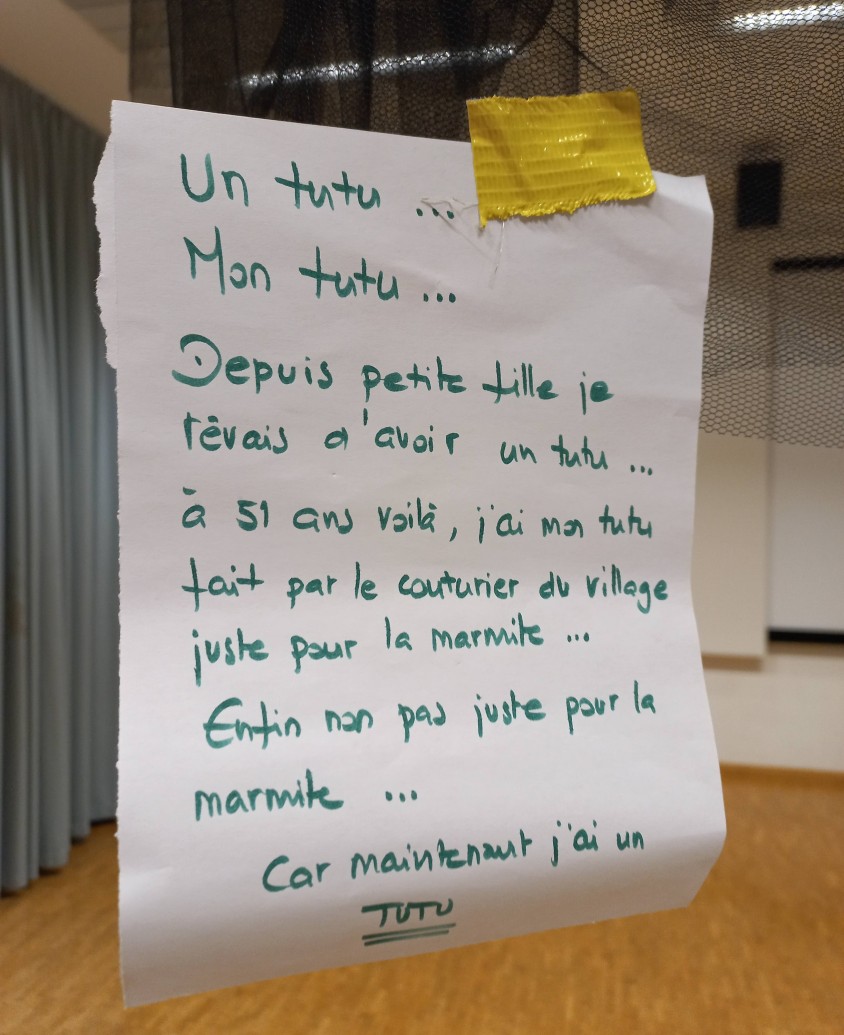 Un tutu ...
Mon tutu ...
Depuis petite fille je
rêvais d'avoir un tutu ...
à 51 ans voilà, j'ai mon tutu
fait par le couturier du village
juste pour la marmite ...
Enfin non pas juste pour la
marmite ...
Car maintenant j'ai un
TUTU